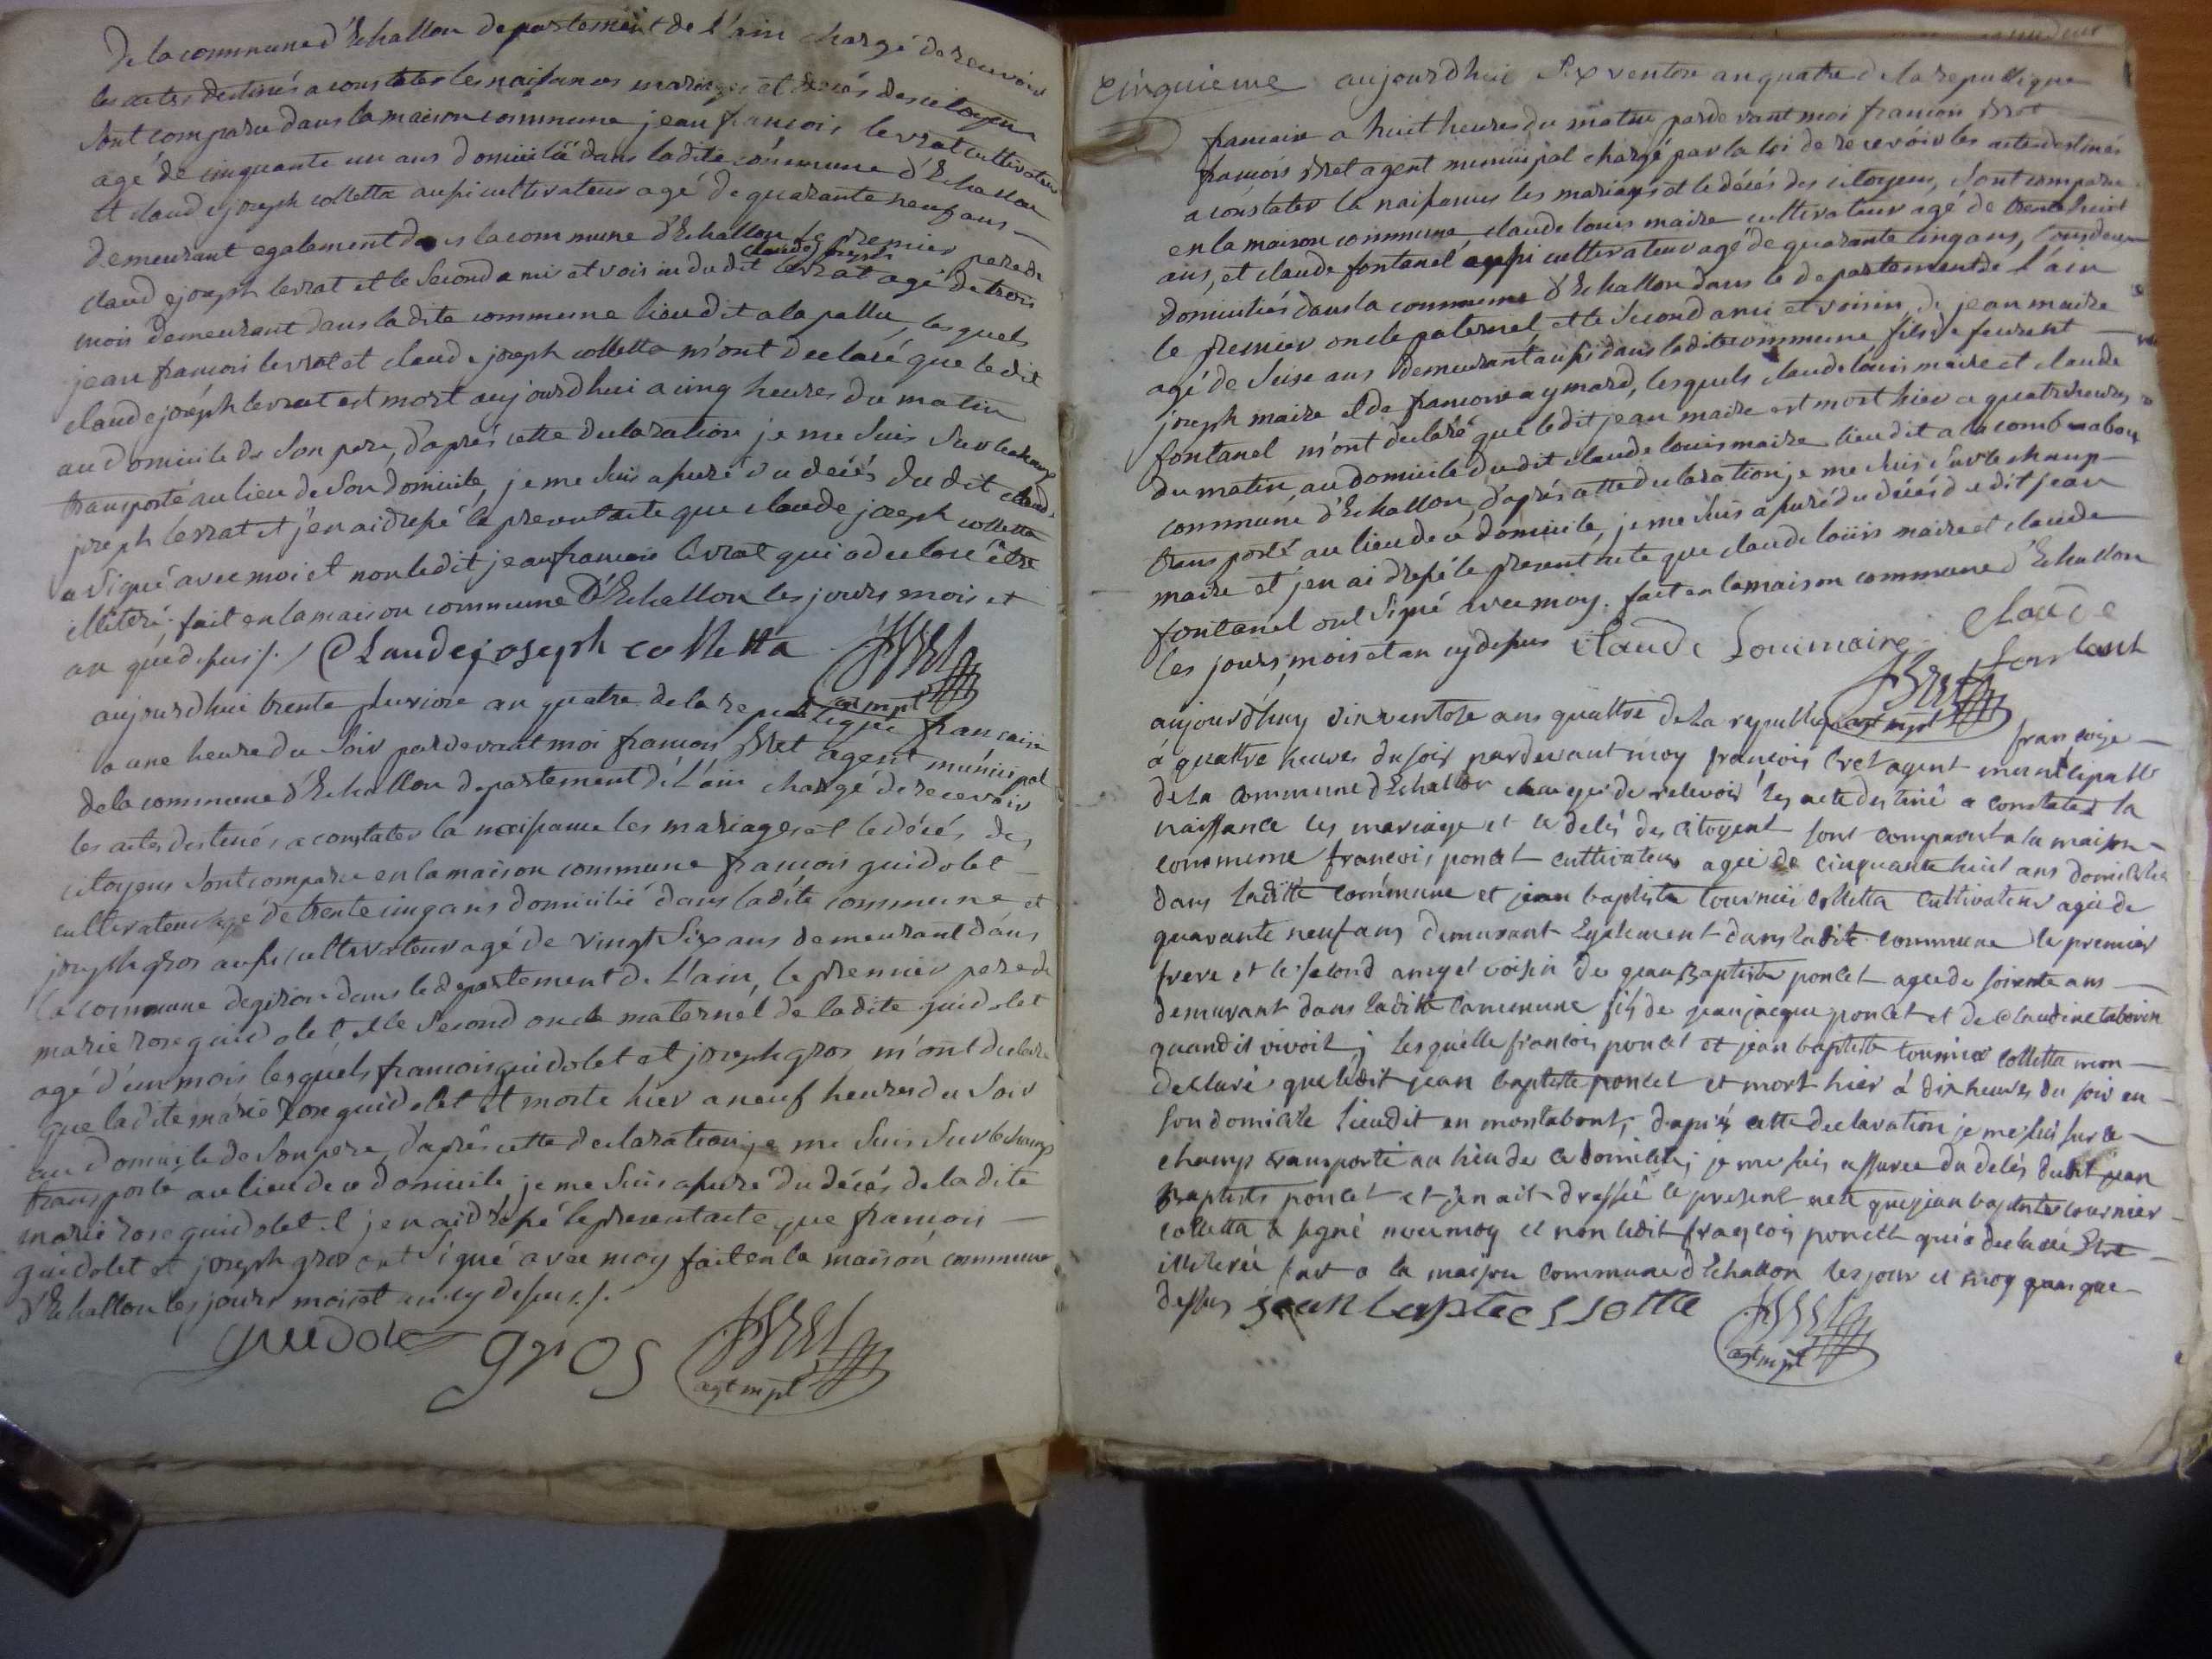 de la commune d'Echallon departement de l'ain chargé de recevoir
les actes destinés a constater les naissances mariages et décés des citoyens
sont comparu dans la maison commune jean francois levrat cultivateur
agé de cinquante un ans domicilié dans ladite commune d'Echallon
et claude joseph colletta aussi cultivateur agé de quarante neuf ans
demeurant egalement dans la commune d'Echallon le premier pere de
claude joseph levrat et le second ami et voisin du dit claude joseph levrat agé de trois
mois demeurant dans ladite commune lieu dit a la pallu, lesquels
jean francois levrat et claude joseph colletta m'ont declaré que le dit
claude joseph levrat est mort aujourdhui a cinq heures du matin
au domicile de son pere, d'aprés cette declaration je me suis sur le champ
transporté au lieu de son domicile, je me suis assuré du décés du dit claude
joseph levrat et j'en ai dressé le present acte que claude joseph colletta
a signé avec moi et non ledit jean francois levrat qui a declaré être
illitéré. fait en la maison commune d'Echallon les jours mois et
an que dessus ./. Claude joseph colletta
agt mpl
aujourdhui trente pluviose an quatre de la republique francaise
a une heure du soir pardevant moi francois Bret agent municipal
de la commune d'Echallon departement de L'ain chargé de recevoir
les actes destinés a constater la naissance les mariages et le décés des
citoyens sont comparu en la maison commune francois guidolet
cultivateur agé de trente cinq ans domicilié dans ladite commune et
joseph gros aussi cultivateur agé de vingt six ans demeurant dans
la commune de giron dans le departement de L'ain, le premier pere de
marie rose guidolet, et le second oncle maternel de ladite guidolet
agé d'un mois lesquels francois guidolet et joseph gros m'ont declaré
que ladite marie rose guidolet est morte hier a neuf heures du soir
au domicile de son pere, d'aprés cette declaration je me suis sur le champ
transporté au lieu de ce domicile je me suis assuré du décés de la dite
marie rose guidolet et j'en ai dressé le present acte que francois
guidolet et joseph gros ont signé avec moy fait en la maison commune
d'Echallon les jours mois et an cy dessus ./.
guidolet gros
agt mpl
cinquieme aujourdhui six ventose an quatre de la republique
francaise a huit heures du matin pardevant moi francois Bret
francois Bret agent municipal chargé par la loi de recevoir les actes destinés
a constater la naissances les mariages et le décés des citoyens, sont comparu
en la maison commune claude louis maire cultivateur agé de trente huit
ans, et claude fontanel aussi cultivateur agé de quarante cinq ans, tous deux
domiciliés dans la commune d'Echallon dans le departement de l'ain
le premier oncle paternel, et le second ami et voisin, de jean maire
agé de seise ans demeurant aussi dans ladite commune fils de feurent
joseph maire et de francoise aymard, lesquels claude louis maire et claude
fontanel m'ont declaré que ledit jean maire est mort hier a quatre heures
du matin, au domicile du dit claude louis maire lieu dit a la
commune d'Echallon, d'aprés cette declaration je me suis sur le champ
transporté au lieu de ce domicile, je me suis assuré du décés du dit jean
maire et j'en ai dressé le present acte que claude louis maire et claude
fontanel ont signé avec moy. fait en la maison commune d'Echallon
les jours, mois et an cy dessus claude Louimaire Claude
agt mpl
aujourd'huy six ventose ans quattre de la republique françoise
à quattre heures du soir pardevant moy francois Bret agent municipalle
de la commune d'Echallon chargé de relevoir les acte destiné a constater la
naissance les mariage et le delés des citoyent sont comparut a la maison
commune francois poncet cultivateur ageé de cinquante huit ans domicilié
dans laditte commune et jean baptiste tournier colletta cultivateur ageé de
quarante neuf ans demurant Egalement dans ladite commune le premier
frere et le second amy et voisin de jean Baptiste poncet ageé de soixente ans
demurant dans laditte commune fils de jean jacque poncet et de claudine tabourin
quand il vivoit; lesquelle francois poncet et jean baptiste tournier colletta mon
declaré que ledit jean baptiste poncet et mort hier à dix heures du soir en
son domicile lieudit en montabont, d'aprés cette declaration je me suis sur le
champ transporté au lieu de ce domicile; je me suis assuree du delés dudit jean
Baptiste poncet et j'en ait dressé le present acte que jean baptiste tournier
colletta a signé avec moy et non ledit françois poncet qui a declaré Etre
illiterée fait a la maison commune d'Echallon les jour et moy que
dessus jean baptiste
agt mpl